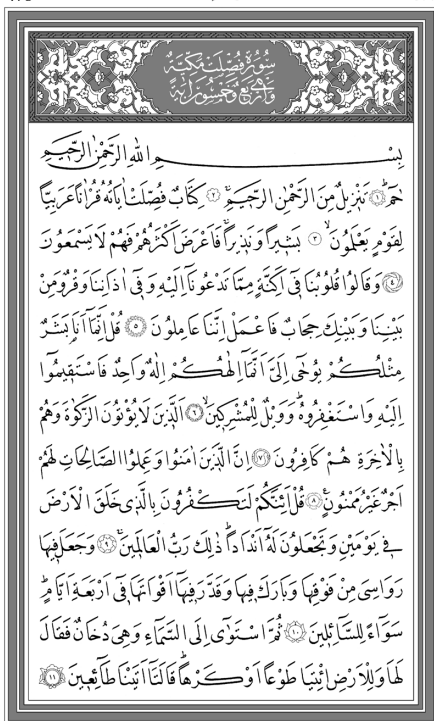 سُورَةُ فُصِّلَتْ مَكِّيَّةٌ
وَهِيَ أَرْبَعٌ وَخَمْسُونَ اٰيَةً
بِسْمِ اللّٰهِ الرَّحْمٰنِ الرَّحٖيمِ
حٰمٓۚ ﴿١﴾ تَنْزٖيلٌ مِنَ الرَّحْمٰنِ الرَّحٖيمِۚ ﴿٢﴾ كِتَابٌ فُصِّلَتْ اٰيَاتُهُ قُرْاٰناً عَرَبِيّاً
لِقَوْمٍ يَعْلَمُونَۙ ﴿٣﴾ بَشٖيراً وَنَذٖيراًۚ فَاَعْرَضَ اَكْثَرُهُمْ فَهُمْ لَا يَسْمَعُونَ
﴿٤﴾ وَقَالُوا قُلُوبُنَا فٖٓي اَكِنَّةٍ مِمَّا تَدْعُونَٓا اِلَيْهِ وَفٖٓي اٰذَانِنَا وَقْرٌ وَمِنْ
بَيْنِنَا وَبَيْنِكَ حِجَابٌ فَاعْمَلْ اِنَّنَا عَامِلُونَ ﴿٥﴾ قُلْ اِنَّمَٓا اَنَا۬ بَشَرٌ
مِثْلُكُمْ يُوحٰٓى اِلَيَّ اَنَّمَٓا اِلٰهُكُمْ اِلٰهٌ وَاحِدٌ فَاسْتَقٖيمُٓوا
اِلَيْهِ وَاسْتَغْفِرُوهُؕ وَوَيْلٌ لِلْمُشْرِكٖينَۙ ﴿٦﴾ اَلَّذٖينَ لَا يُؤْتُونَ الزَّكٰوةَ وَهُمْ
بِالْاٰخِرَةِ هُمْ كَافِرُونَ ﴿٧﴾ اِنَّ الَّذٖينَ اٰمَنُوا وَعَمِلُوا الصَّالِحَاتِ لَهُمْ
اَجْرٌ غَيْرُ مَمْنُونٍ۟ ﴿٨﴾ قُلْ اَئِنَّكُمْ لَتَكْفُرُونَ بِالَّذٖي خَلَقَ الْاَرْضَ
فٖي يَوْمَيْنِ وَتَجْعَلُونَ لَهُٓ اَنْدَاداًؕ ذٰلِكَ رَبُّ الْعَالَمٖينَۚ ﴿٩﴾ وَجَعَلَ فٖيهَا
رَوَاسِيَ مِنْ فَوْقِهَا وَبَارَكَ فٖيهَا وَقَدَّرَ فٖيهَٓا اَقْوَاتَهَا فٖٓي اَرْبَعَةِ اَيَّامٍؕ
سَوَٓاءً لِلسَّٓائِلٖينَ ﴿١٠﴾ ثُمَّ اسْتَوٰٓى اِلَى السَّمَٓاءِ وَهِيَ دُخَانٌ فَقَالَ
لَهَا وَلِلْاَرْضِ ائْتِيَا طَوْعاً اَوْ كَرْهاًؕ قَالَتَٓا اَتَيْنَا طَٓائِعٖينَ ﴿١١﴾